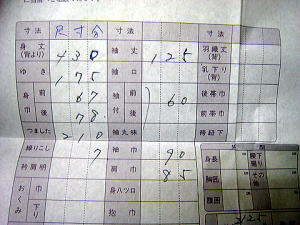 寸法 尺寸分 寸法 寸法
身丈(背より) 430 袖丈 125 羽織丈(背)
ゆき 175 袖口 乳下り(肩)
身巾 前 67 袖付 前 60 後帯巾
後 78 後 前帯巾
つました 210 袖丸味 時紐下
繰りこし 7 袖巾 90
衿肩明 肩巾 85 身長 膝下廻り
おくみ 巾 身八ツ口 胸囲 その他
下り 抱巾 腰囲
2125